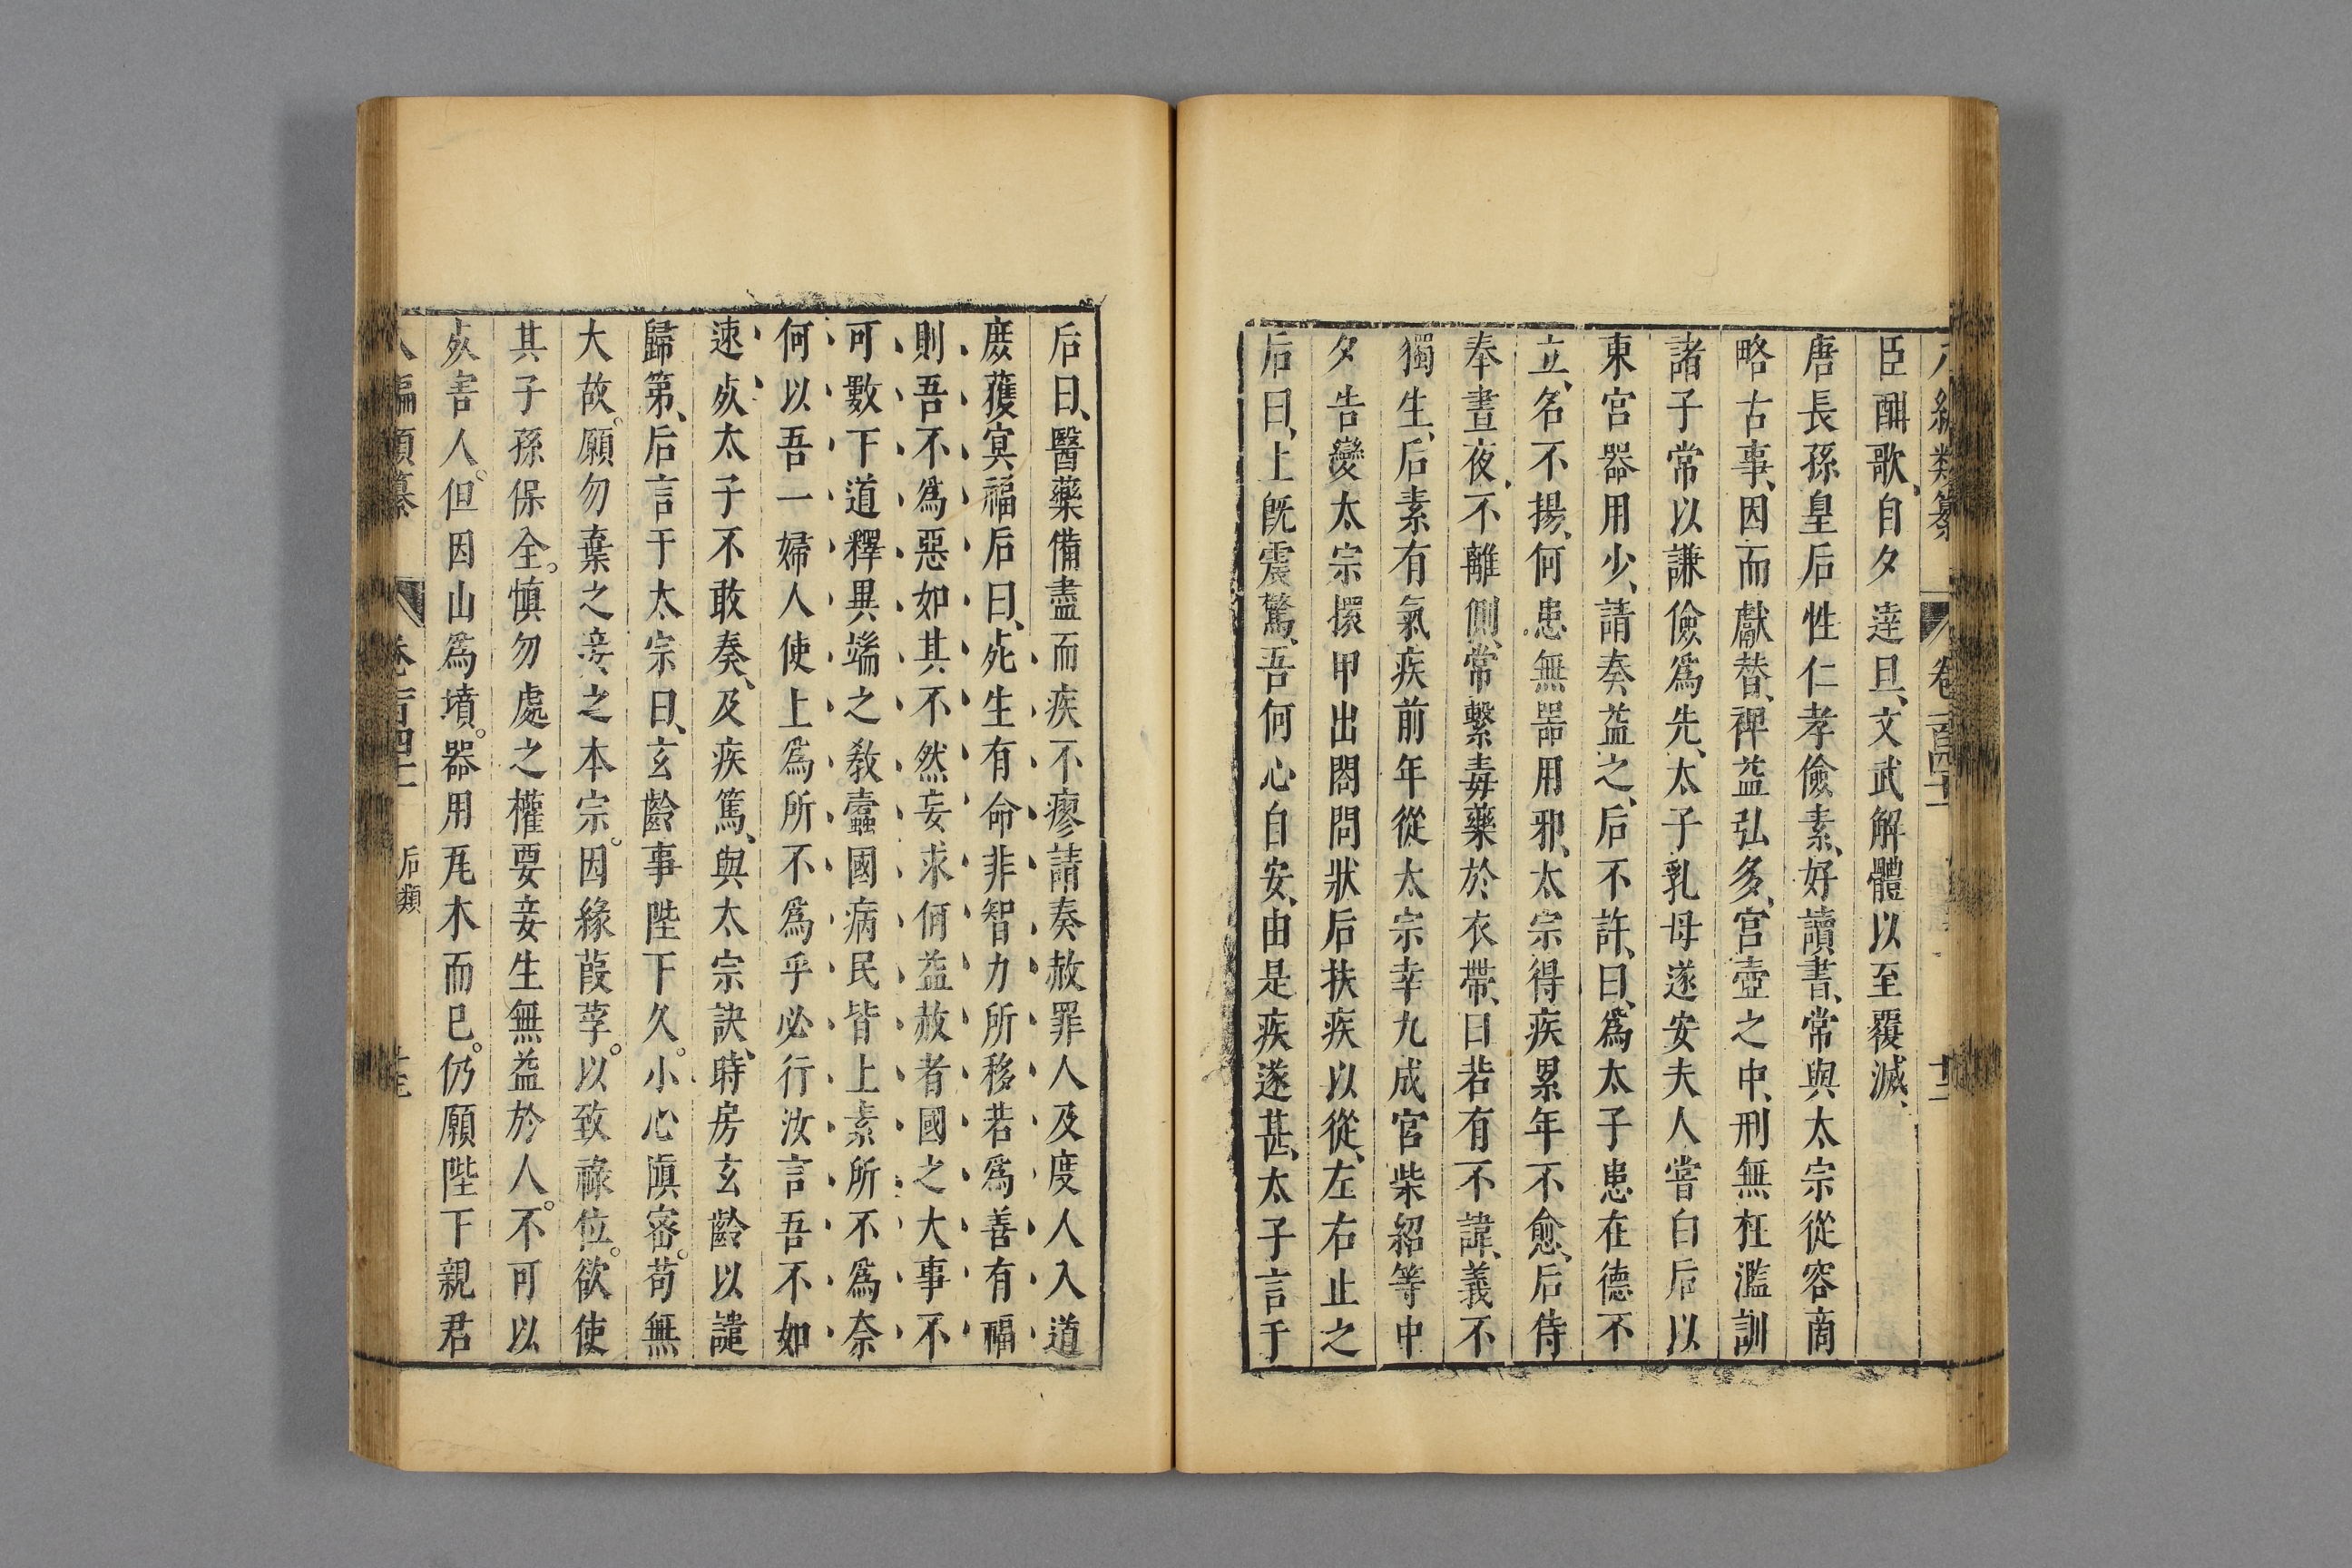 臣酣歌、自夕達旦、文武解體以至覆滅、
唐長孫皇后性仁孝儉素、好讀書、常與太宗從容商
略古事、因而獻替、裨益弘多、宮壼之中、刑無枉濫訓
諸子常以謙儉爲先、太子乳母遂安夫人嘗白后以
東宮器用少、請奏益之、后不許、曰、爲太子患在德不
立、名不揚、何患無器用邪、太宗得疾累年不愈、后侍
奉晝夜、不離側、常繫毒藥於衣帶、曰若有不諱、義不
獨生、后素有氣疾前年從太宗幸九成宮柴紹等中
夕告變太宗擐甲出閤問狀后扶疾以從、左右止之
后曰、上既震驚、吾何心自安、由是疾遂甚、太子言于
后曰、醫藥備盡而疾不瘳請奏赦罪人及度人入道
庻蒦冥福后曰、死生有命非智力所移若爲善有福
則吾不爲惡如其不然妄求何益赦者國之大事不
可數下道釋異端之教蠹國病民皆上素所不爲奈
何以吾一婦人使上爲所不爲乎必行汝言吾不如
速死太子不敢奏、及疾篤、與太宗訣、時房玄齡以譴
歸第、后言于太宗曰、玄齡事陛下久。小心愼審。苟無
大故。願勿棄之妾之本宗。因緣葭莩。以致祿位。欲使
其子孫保全。愼勿處之權要妾生無益於人。不可以
死害人。但因山爲墳。器用瓦木而已。仍願陛下親君
八編類纂 卷百四十一 后類